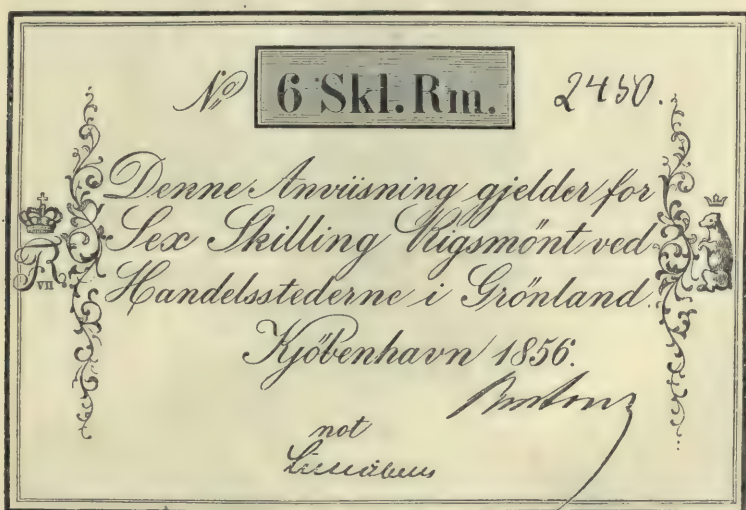 No 6 Skl. Rm. 2450.
Denne Anviisning gjelder for
Sex Skilling Rigsmönt ved
Handelsstederne i Grönland.
Kjöbenhavn 1856.
not
FR VII